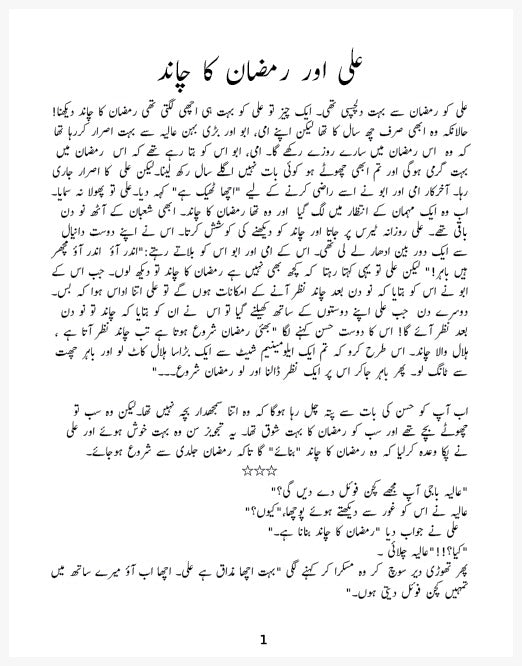 علی اور رمضان کا چاند
علی کو رمضان سے بہت دلچسپی تھی۔ ایک چیز تو علی کو بہت ہی اچھی لگتی تھی رمضان کا چاند دیکھنا!
حالانکہ وہ ابھی صرف چھ سال کا تھا لیکن اپنے امی، ابو اور بڑی بہن عالیہ سے بہت اصرار کررہا تھا
کہ وہ اس رمضان میں سارے روزے رکھے گا۔ امی، ابو اس کو بتا رہے تھے کہ اس رمضان میں
بہت گرمی ہوگی اور تم ابھی چھوٹے ہو کوئی بات نہیں اگلے سال رکھ لینا۔لیکن علی کا اصرار جاری
رہا۔ آخرکار امی اور ابو نے اسے راضی کرنے کے لیے "اچھا ٹھیک ہے" کہہ دیا۔علی تو پھولا نہ سمایا۔
اب وہ ایک مہمان کے انتظار میں لگ گیا اور وہ تھا رمضان کا چاند۔ ابھی شعبان کے آٹھ نو دن
باقی تھے۔ علی روزانہ ٹیرس پر جاتا اور چاند کو دیکھنے کی کوشش کرتا۔ اس نے اپنے دوست دانیال
سے ایک دور بین ادھار لے لی تھی۔ اس کے امی اور ابو اس کو بلاتے رہتے:"اندر آؤ اندر آؤ مچھر
ہیں باہر!" لیکن علی تو یہی کہتا رہتا کہ کچھ بھی نہیں ہے رمضان کا چاند تو دیکھ لوں۔ جب اس کے
ابو نے اس کو بتایا کہ نو دن بعد چاند نظر آنے کے امکانات ہوں گے تو علی اتنا اداس ہوا کہ بس۔
دوسرے دن جب علی اپنے دوستوں کے ساتھ کھیلنے گیا تو اس نے ان کو بتایا کہ چاند تو نو دن
بعد نظر آئے گا! اس کا دوست حسن کہنے لگا "بھئی رمضان شروع ہوتا ہے تب چاند نظر آتا ہے ،
ہلال والا چاند۔ اس طرح کرو کہ تم ایک ایلومینیم شیٹ سے ایک بڑاسا ہلال کاٹ لو اور باہر چھت
سے ٹانگ لو۔ پھر باہر جاکر اس پر ایک نظر ڈالنا اور لو رمضان شروع۔۔۔"
اب آپ کو حسن کی بات سے پتہ چل رہا ہوگا کہ وہ اتنا سمجھدار بچہ نہیں تھا۔لیکن وہ سب تو
چھوٹے بچے تھے اور سب کو رمضان کا بہت شوق تھا۔ یہ تجویز سن وہ بہت خوش ہوئے اور علی
نے پکا وعدہ کرلیا کہ وہ رمضان کا چاند "بنائے" گا تاکہ رمضان جلدی سے شروع ہوجائے۔
☆☆☆
"عالیہ باجی آپ مجھے کچن فوئل دے دیں گی؟"
عالیہ نے اس کو غور سے دیکھتے ہوئے پوچھا،"کیوں؟"
علی نے جواب دیا "رمضان کا چاند بنانا ہے۔"
"کیا؟!!"عالیہ چلائی ۔
پھر تھوڑی دیر سوچ کر وہ مسکرا کر کہنے لگی "بہت اچھا مذاق ہے علی۔ اچھا اب آؤ میرے ساتھ میں
تمہیں کچن فوئل دیتی ہوں۔"
1